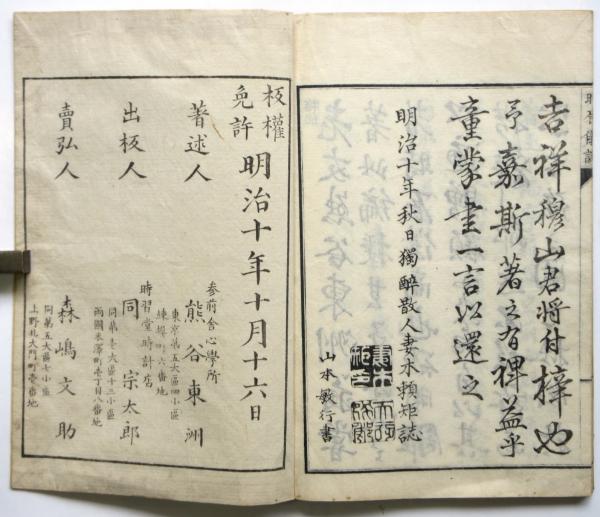 吉祥穆山君将付梓也
予嘉斯著之有裨益乎
童蒙書一言以還之
明治十年秋日獨醉散人妻木頼矩誌
山本敏行書
板權免許
明治十年十月十六日
著述人
参前舎心學所
東京第五大區四小區
練塀町六番地
熊谷東洲
出板人
時習堂時計店
同第壱大區十三小區
両國米澤町壱丁目八番地
同宗太郎
賣弘人
同第五大區七小區
上野北大門町壱番地
森嶋文助